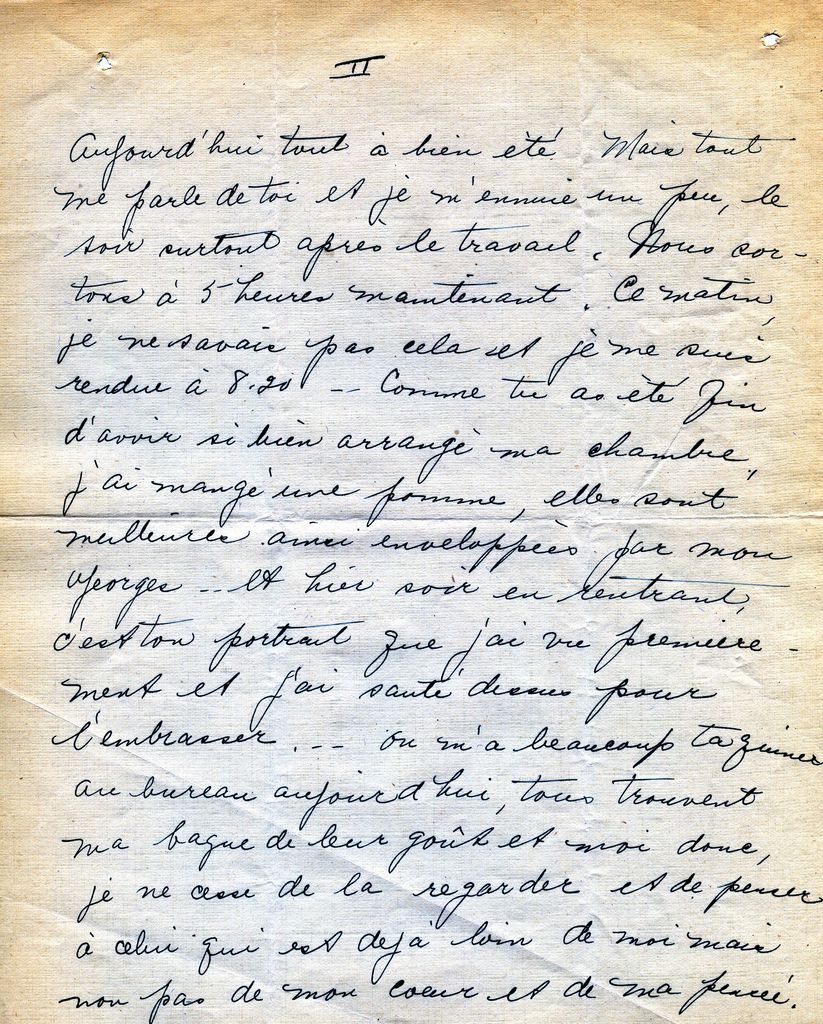 II
Aujourd'hui tout à bien été. Mais tout
me parle de toi et je m'ennuie un peu, le
soir surtout après le travail. Nous sor-
tons à 5 heures maintenant. Ce matin,
je ne savais pas cela et je me suis
rendue à 8.20 -- Comme tu as été fin
d'avoir si bien arrangé ma chambre,
j'ai mangé une pomme, elles sont
meilleures ainsi enveloppées par mon
Georges -- Et hier soir en rentrant,
c'est ton portrait que j'ai vu première-
ment et j'ai sauté dessus pour
l'embrasser. -- on m'a beaucoup taquiner
au bureau aujourd'hui, tous trouvent
ma bague de leur goût et moi donc,
je ne cesse de la regarder et de penser
à celui qui est déjà loin de moi mais
non pas de mon coeur et de ma pensée.